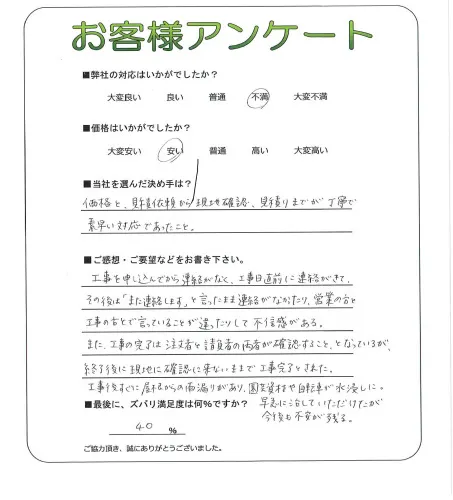 お客様アンケート
■弊社の対応はいかがでしたか？
大変良い 良い 普通 不満 大変不満
■価格はいかがでしたか？
大変安い 安い 普通 高い 大変高い
■当社を選んだ決め手は？
価格と、見積依頼から現地確認、見積りまでが丁寧で
素早い対応であったこと。
■ご感想・ご要望などをお書き下さい。
工事を申し込んでから連絡がなく、工事日直前に連絡がきて、
その後は「また連絡します」と言ったまま連絡がなかったり、営業の方と
工事の方とで言っていることが違ったりして不信感がある。
また、工事の完了は注文者と請負者の両者が確認すること、となっているが、
終了後に現地に確認に来ないままで工事完了とされた。
工事後すぐに屋根からの雨漏りがあり、園芸資材や自転車が水浸しに。
■最後に、ズバリ満足度は何％ですか？
早急に治していただけたが
今後も不安が残る。
40 %
ご協力頂き、誠にありがとうございました。